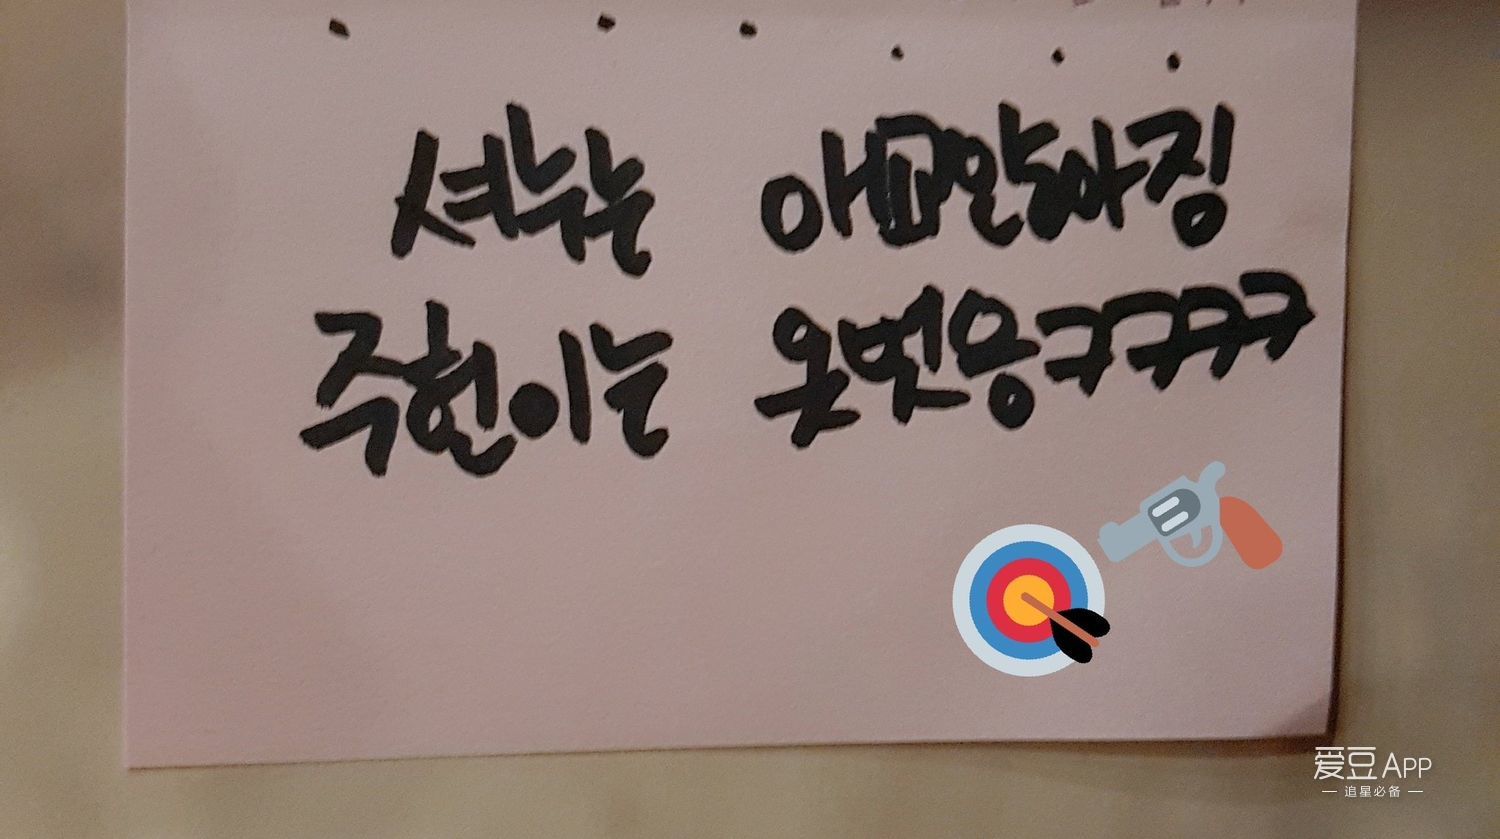 셔누는 애교많아징
주헌이는 옷벗응ㅋㅋㅋㅋ
爱豆APP
追星必备